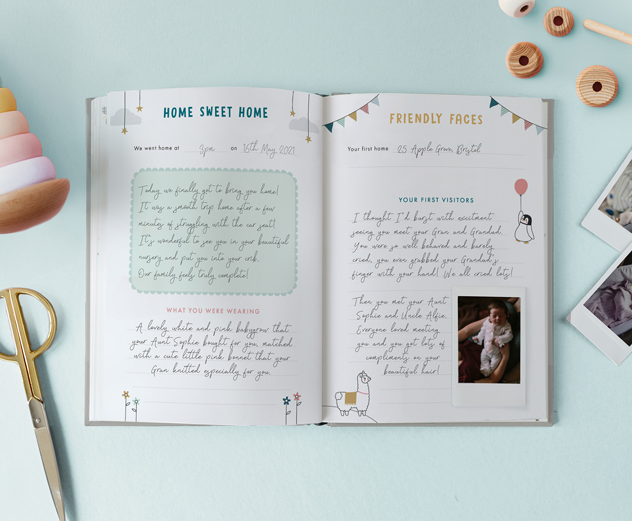 HOME SWEET HOME
We went home at 3pm on 16th May 2021
Today we finally got to bring you home!
It was a smooth trip home after a few
minutes of struggling with the car seat!
It's wonderful to see you in your beautiful
nursery and put you into your crib.
Our family feels truly complete!
WHAT YOU WERE WEARING
A lovely white and pink babygrow that
your Aunt Sophie bought for you, matched
with a cute little pink bonnet that your
Gran knitted especially for you
FRIENDLY FACES
Your first home 25 Apple Green, Bristol
YOUR FIRST VISITORS
I thought I'd burst with excitment
seeing you meet your Gran and Grandad.
You were so well behaved and barely
cried, you even grabbed your Grandad's
finger with your hand! We all cried lots!
Then you met your Aunt
Sophie and Uncle
Everyone loved meeting
you and you got lots of
compliments on your
beautiful hair!